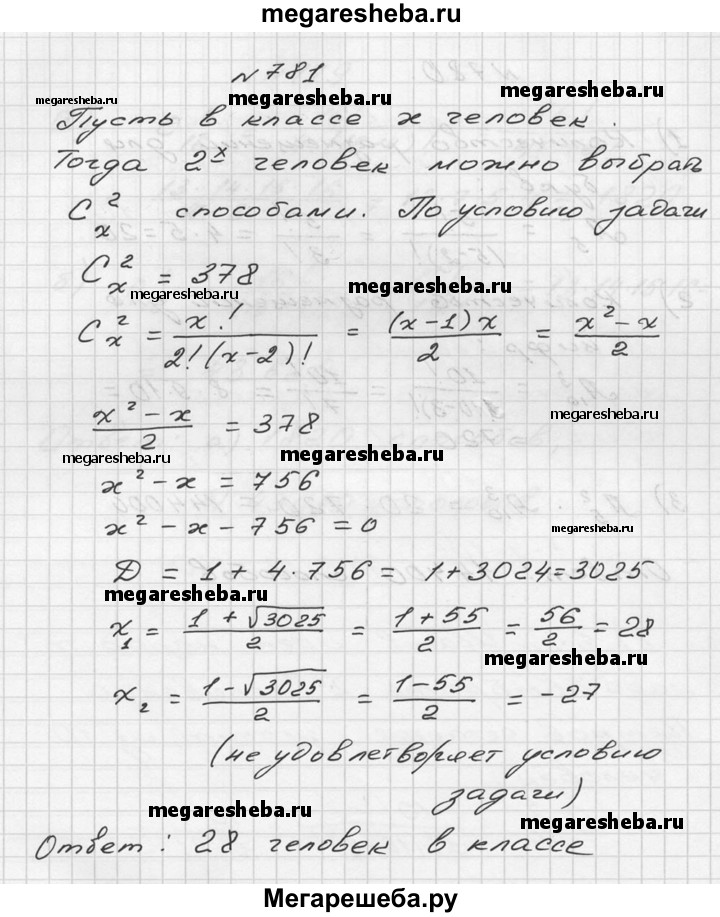 megaresheba.ru
№781
megaresheba.ru megaresheba.ru megaresheba.ru
Пусть в классе x человек.
Тогда 2ˣ человек можно выбрать
C_x^2 способами. По условию задачи
C_x^2 = 378
megaresheba.ru megaresheba.ru
C_x^2 = x!/(2!(x-2)!) = ((x-1)x)/2 = (x²-x)/2
(x²-x)/2 = 378
megaresheba.ru
megaresheba.ru megaresheba.ru
x² - x = 756
x² - x - 756 = 0
megaresheba.ru
D = 1 + 4·756 = 1+3024=3025
megaresheba.ru
x₁ = (1+√3025)/2 = (1+55)/2 = 56/2 = 28
megaresheba.ru
x₂ = (1-√3025)/2 = (1-55)/2 = -27
(не удовлетворяет условию
задачи)
megaresheba.ru megaresheba.ru
Ответ: 28 человек в классе
Мегарешеба.ру